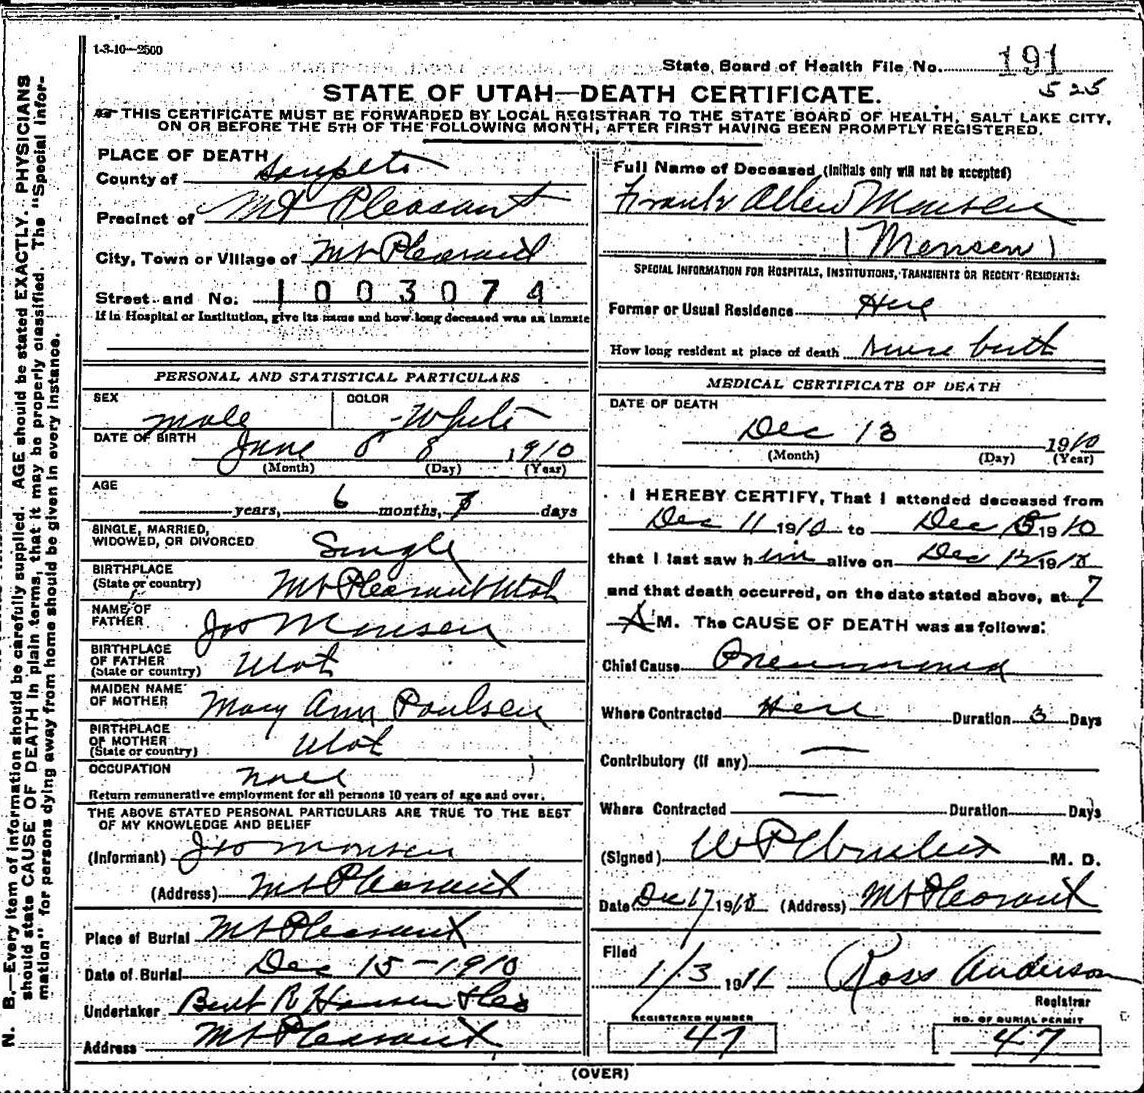 1-3-10—2500
State Board of Health File No. 191
525
STATE OF UTAH—DEATH CERTIFICATE.
THIS CERTIFICATE MUST BE FORWARDED BY LOCAL REGISTRAR TO THE STATE BOARD OF HEALTH, SALT LAKE CITY,
ON OR BEFORE THE 5TH OF THE FOLLOWING MONTH, AFTER FIRST HAVING BEEN PROMPTLY REGISTERED.
N. B.—Every item of information should be carefully supplied. AGE should be stated EXACTLY. PHYSICIANS
should state CAUSE OF DEATH in plain terms, that it may be properly classified. The "Special Infor-
mation" for persons dying away from home should be given in every instance.
PLACE OF DEATH
County of Sanpete
Precinct of Mt Pleasant
City, Town or Village of Mt Pleasant
Street and No. 1003074
If in Hospital or Institution, give its name and how long deceased was an inmate
PERSONAL AND STATISTICAL PARTICULARS
SEX male COLOR White
DATE OF BIRTH June 8 1910
(Month) (Day) (Year)
AGE
years, 6 months, days
SINGLE, MARRIED,
WIDOWED, OR DIVORCED Single
BIRTHPLACE
(State or country) Mt Pleasant Utah
NAME OF
FATHER Jos Monsen
BIRTHPLACE
OF FATHER
(State or country) Utah
MAIDEN NAME
OF MOTHER Mary Ann Poulsen
BIRTHPLACE
OF MOTHER
(State or country) Utah
OCCUPATION None
Return remunerative employment for all persons 10 years of age and over.
THE ABOVE STATED PERSONAL PARTICULARS ARE TRUE TO THE BEST
OF MY KNOWLEDGE AND BELIEF
(Informant) Jos Monsen
(Address) Mt Pleasant
Place of Burial Mt Pleasant
Date of Burial Dec 15-1910
Undertaker Bent R Hansen
Address Mt Pleasant
Full Name of Deceased (Initials only will not be accepted)
Frank Allen Monsen
(Monsen)
SPECIAL INFORMATION FOR HOSPITALS, INSTITUTIONS, TRANSIENTS OR RECENT RESIDENTS:
Former or Usual Residence Here
How long resident at place of death Since birth
MEDICAL CERTIFICATE OF DEATH
DATE OF DEATH
Dec 13 1910
(Month) (Day) (Year)
I HEREBY CERTIFY, That I attended deceased from
Dec 11 1910 to Dec 1910
that I last saw him alive on Dec 12 1910
and that death occurred, on the date stated above, at 7
A M. The CAUSE OF DEATH was as follows:
Chief Cause Pneumonia
Where Contracted Here Duration 3 Days
Contributory (If any) —
Where Contracted — Duration Days
(Signed) M. D.
Date Dec 17 1910 (Address) Mt Pleasant
Filed
1/3 1911 Ross Anderson
Registrar
REGISTERED NUMBER
47
NO. OF BURIAL PERMIT
47
(OVER)